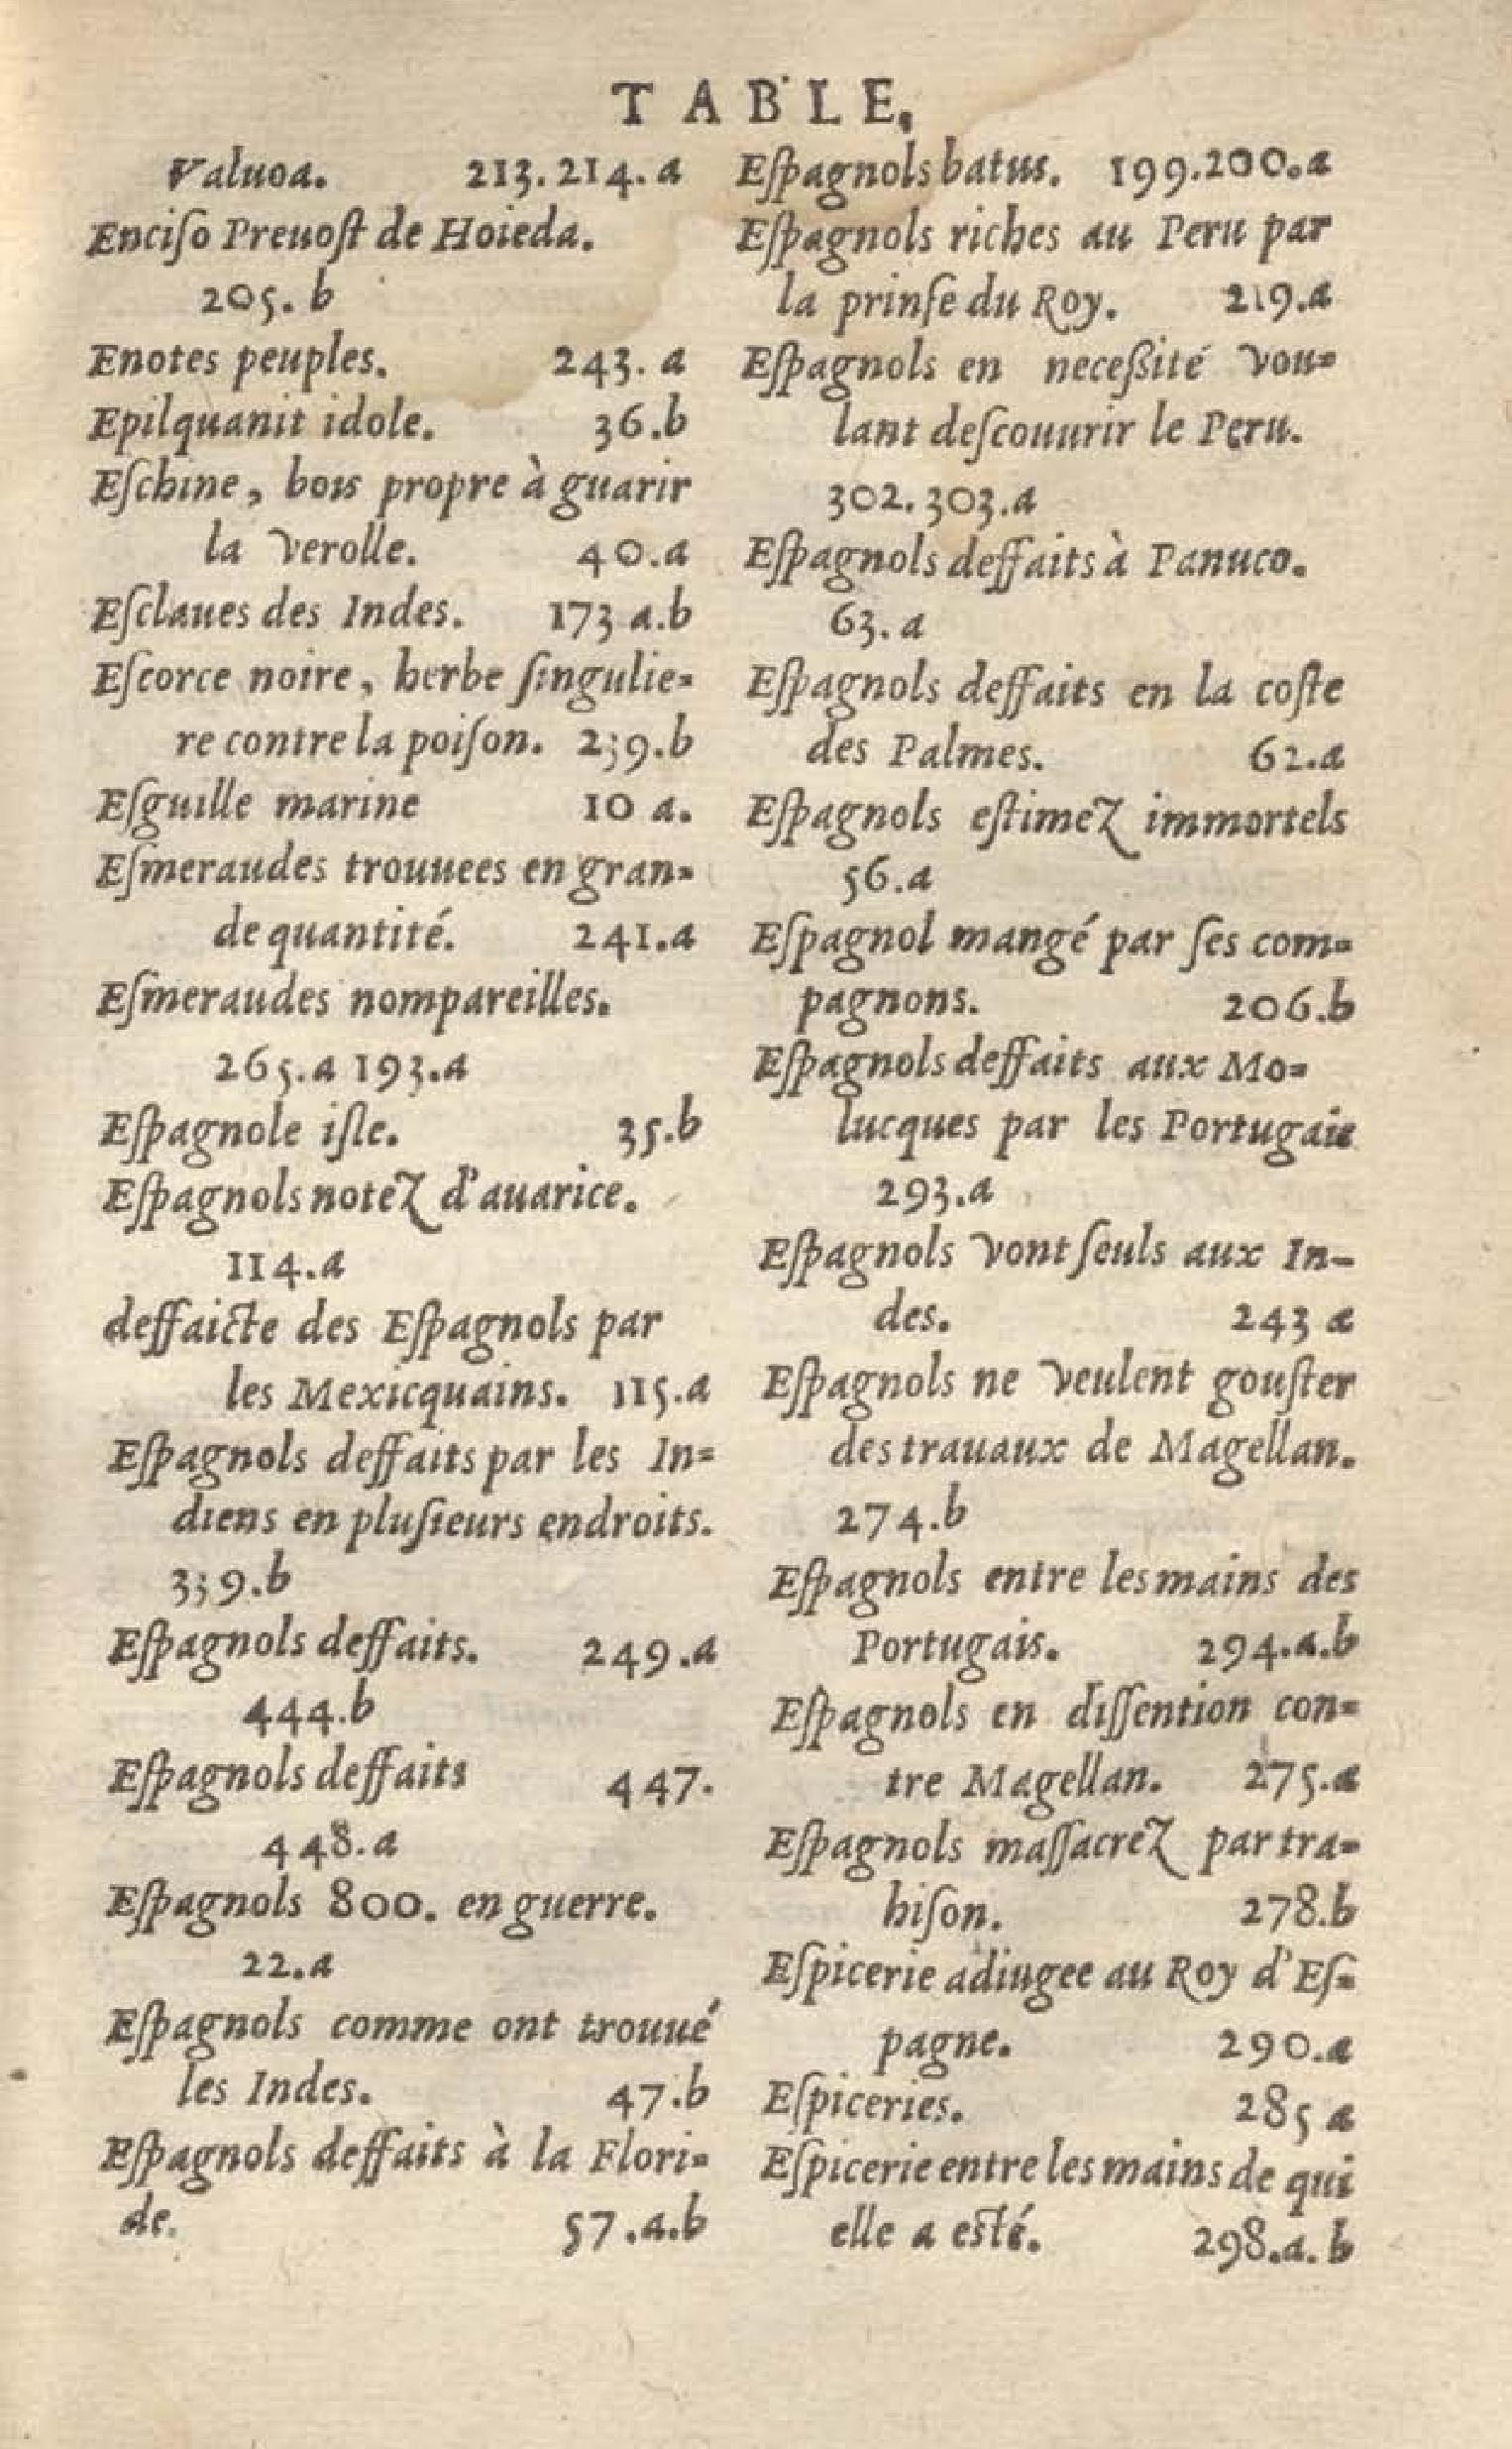 TABLE.
Valuoa. 213.214.a
Enciſo Preuoſt de Hoieda.
205.b
Enotes peuples. 243.a
Epilquanit idole. 36.b
Eſchine, bois propre à guarir
la verolle. 40.a
Eſclaues des Indes. 173 a.b
Eſcorce noire, herbe ſingulie-
re contre la poiſon. 239.b
Eſguille marine 10 a.
Eſmeraudes trouuees en gran-
de quantité. 241.a
Eſmeraudes nompareilles.
265.a 193.a
Eſpagnole iſle. 35.b
Eſpagnols notez d'auarice.
114.a
deffaicte des Eſpagnols par
les Mexicquains. 115.a
Eſpagnols deffaits par les In-
diens en pluſieurs endroits.
339.b
Eſpagnols deffaits. 249.a
444.b
Eſpagnols deffaits 447.
448.a
Eſpagnols 800. en guerre.
22.a
Eſpagnols comme ont trouué
les Indes. 47.b
Eſpagnols deffaits à la Flori-
de. 57.a.b
Eſpagnols batus. 199.200.a
Eſpagnols riches au Peru par
la prinſe du Roy. 219.a
Eſpagnols en neceßité vou-
lant deſcouurir le Peru.
302.303.a
Eſpagnols deffaits à Panuco.
63.a
Eſpagnols deffaits en la coſte
des Palmes. 62.a
Eſpagnols eſtimez immortels
56.a
Eſpagnol mangé par ſes com-
pagnons. 206.b
Eſpagnols deffaits aux Mo-
lucques par les Portugais
293.a
Eſpagnols vont ſeuls aux In-
des. 243 a
Eſpagnols ne veulent gouſter
des trauaux de Magellan.
274.b
Eſpagnols entre les mains des
Portugais. 294.a.b
Eſpagnols en diſſention con-
tre Magellan. 275.a
Eſpagnols maſſacrez par tra-
hiſon. 278.b
Eſpicerie adiugee au Roy d'Eſ-
pagne. 290.a
Eſpiceries. 285 a
Eſpicerie entre les mains de qui
elle a eſté. 298.a.b